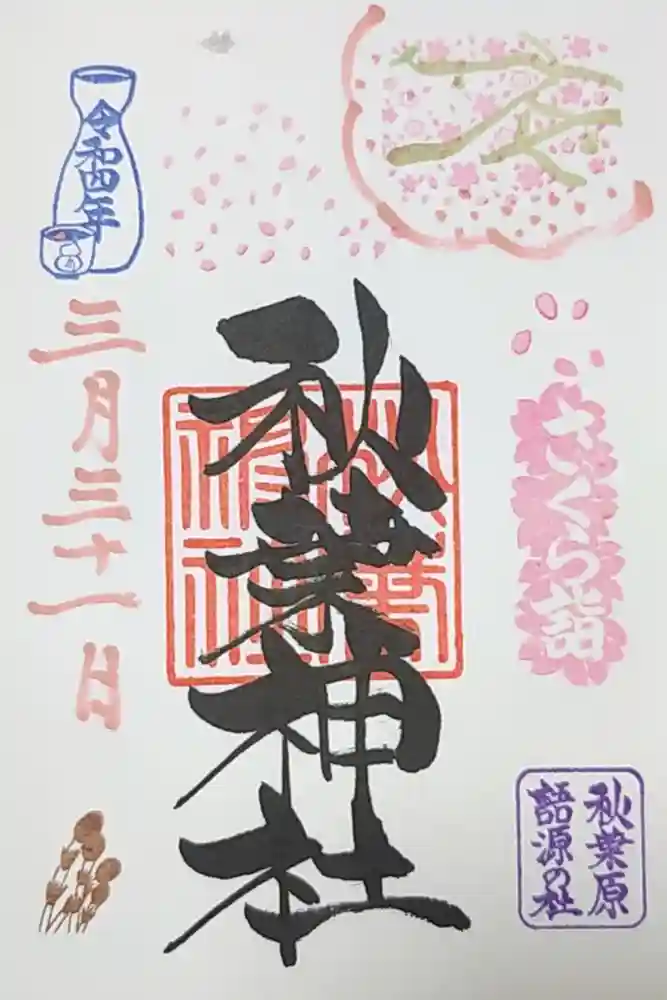 さくら詣
秋葉原
語源の社
秋葉神社
秋葉
神社
令和四年
三月三十一日